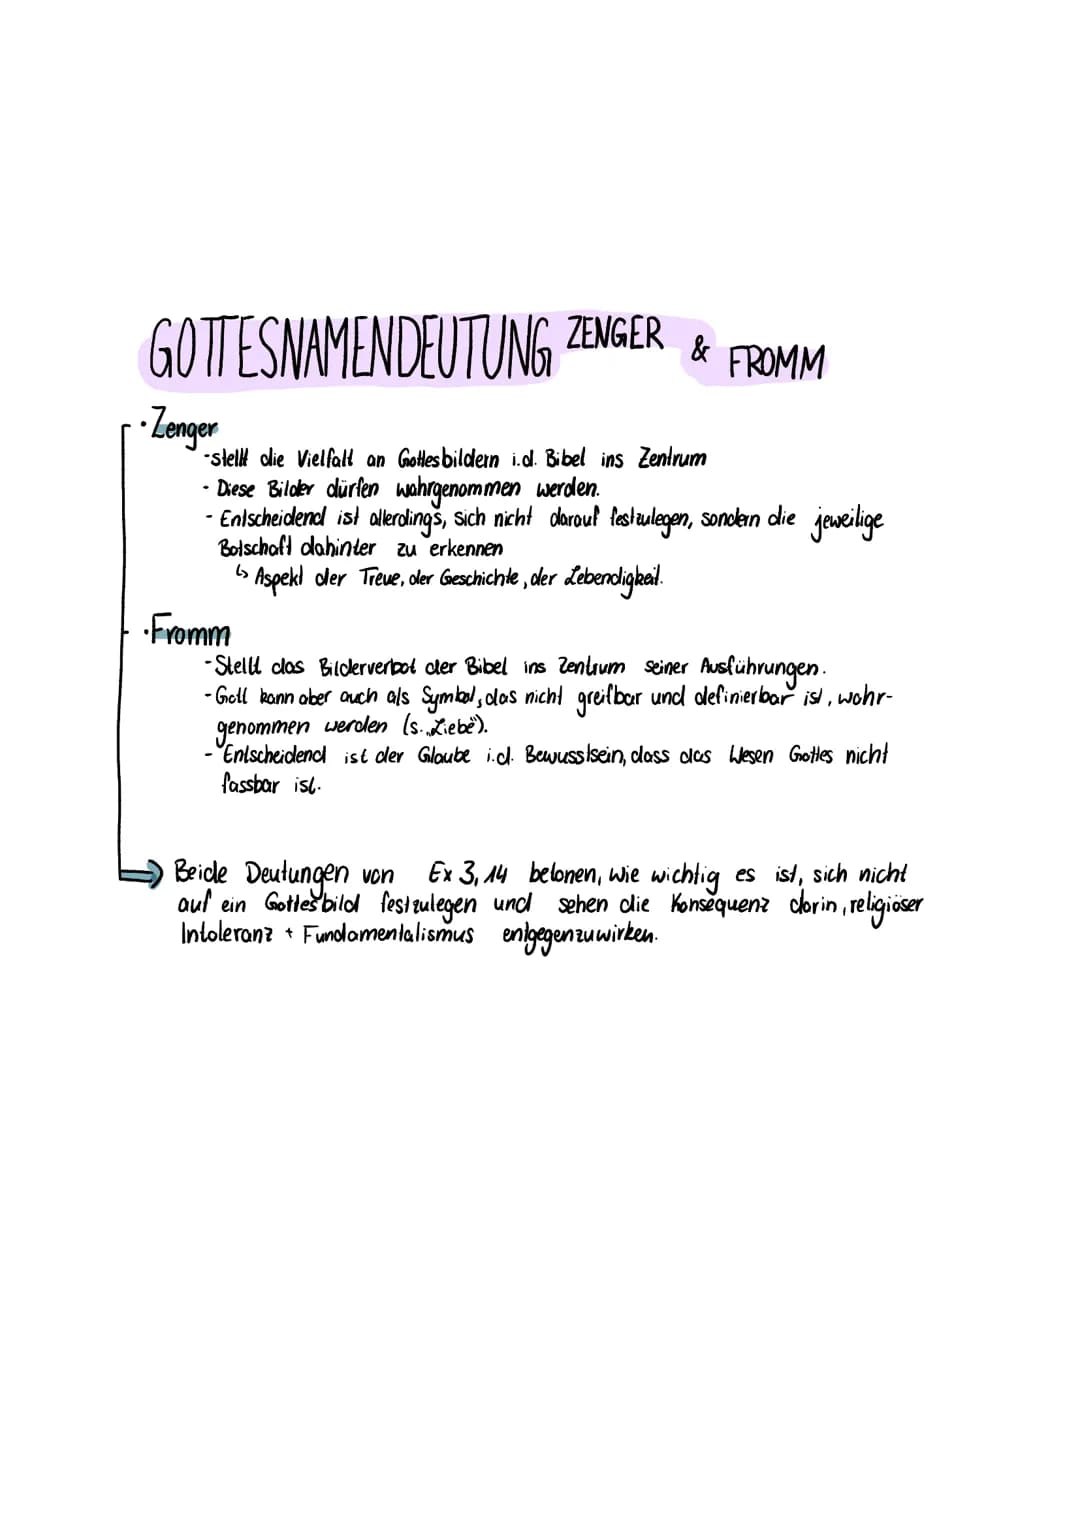 GOTTESNAMENDEUTUNG ZENGER & FROMM
· Zenger
- stellt die Vielfalt an Gottesbildern i.d. Bibel ins Zentrum
- Diese Bilder dürfen wahrgenommen werden.
- Entscheidend ist allerdings, sich nicht darauf festzulegen, sondern die jeweilige
Botschaft dahinter zu erkennen
↳ Aspekt der Treue, der Geschichte, der Lebendigkeit.
· Fromm
- Stellt das Bilderverbot der Bibel ins Zentrum seiner Ausführungen.
- Gott kann aber auch als Symbol, das nicht greifbar und definierbar ist, wahr-
genommen werden (s. „Liebe").
- Entscheidend ist der Glaube i.d. Bewusstsein, dass das Wesen Gottes nicht
fassbar ist.
⇒ Beide Deutungen von Ex 3, 14 betonen, wie wichtig es ist, sich nicht
auf ein Gottesbild festzulegen und sehen die Konsequenz darin, religiöser
Intoleranz + Fundamentalismus entgegenzuwirken.